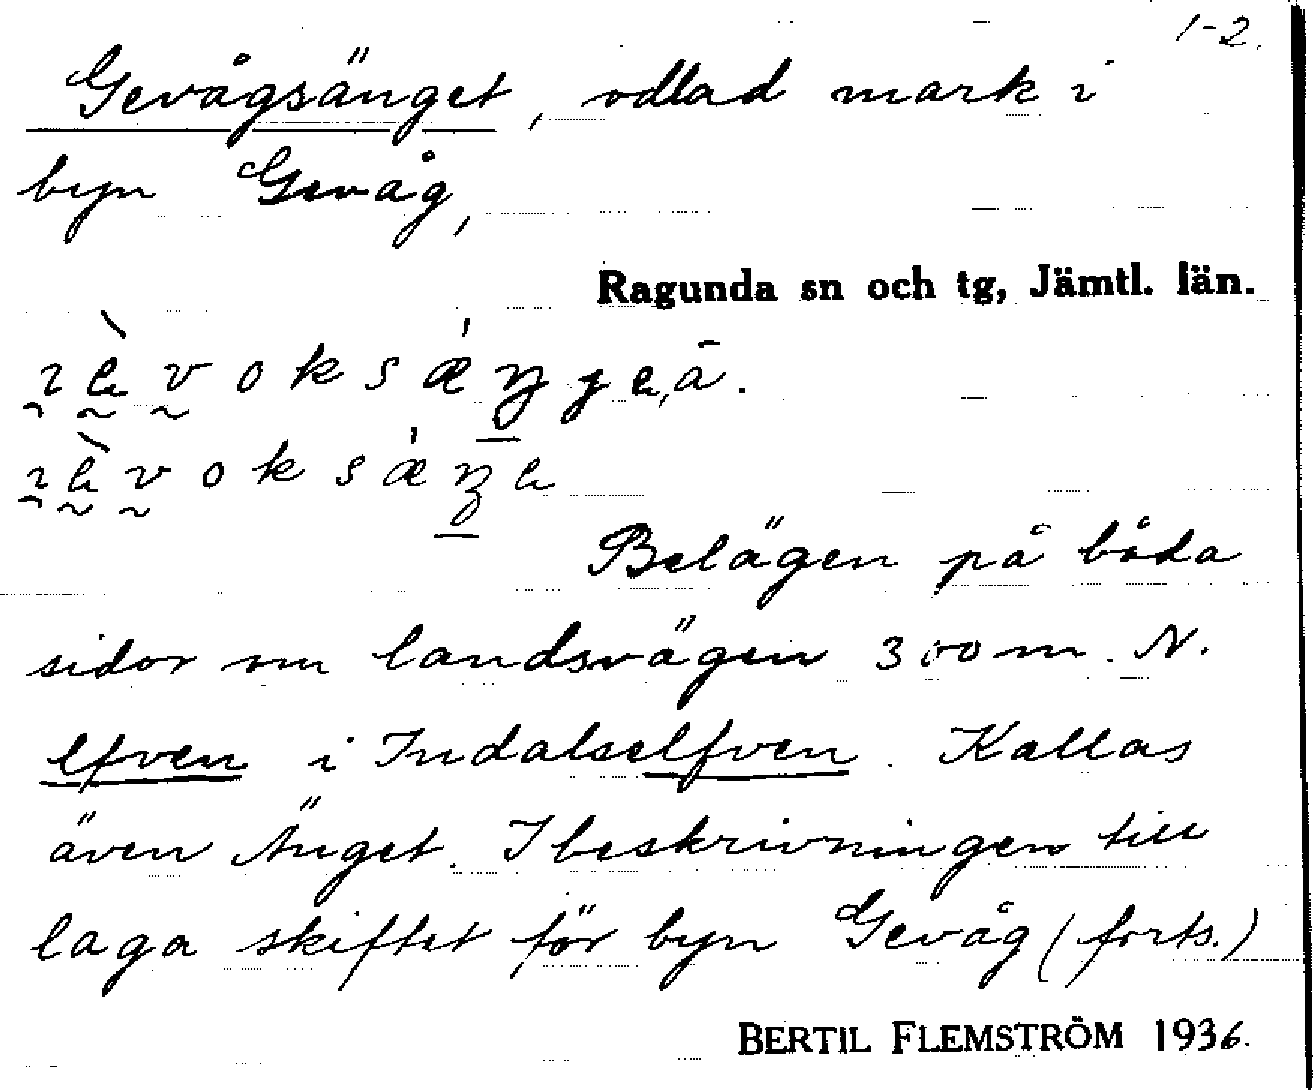 1-2.
Gevågsänget, odlad mark i
byn Gevåg,
Ragunda sn och tg, Jämtl. län.
Belägen på båda
sidor om landsvägen 300 m. N.
elfven i Indalselfven. Kallas
även Änget. I beskrivningen till
laga skiftet för byn Gevåg (forts.)
BERTIL FLEMSTRÖM 1936.